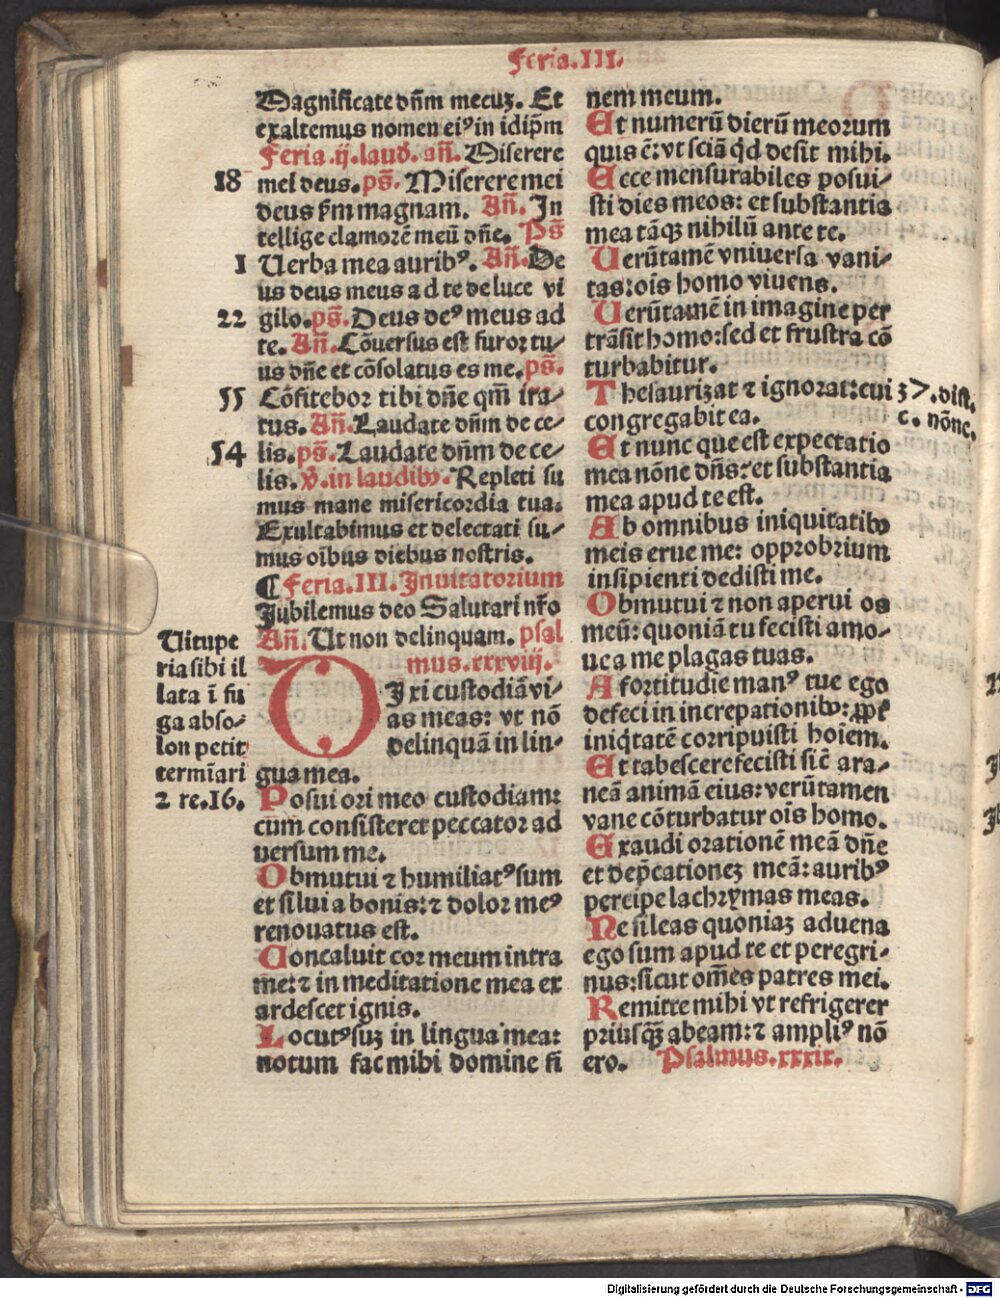 Feria.III.
Magnificate dñm mecuʒ. Et
exaltemus nomen ei⁹ in idip̄m
Feria.ij.laud. añ. Miserere
18 mei deus. ps̄. Miserere mei
deus s̄m magnam. Añ. In
tellige clamorē meū dñe. Ps̄
1 Uerba mea aurib⁹. Añ. De
us deus meus ad te de luce vi
22 gilo. ps̄. Deus de⁹ meus ad
te. Añ. Cōuersus est furor tu⸗
us dñe et cōsolatus es me. ps̄.
55 Cōfitebor tibi dñe qm̄ ira⸗
tus. Añ. Laudate dñm de ce⸗
54 lis. ps̄. Laudate dñm de ce⸗
lis. v̄. in laudibꝰ. Repleti su
mus mane misericordia tua.
Exultabimus et delectati su⸗
mus oībus diebus nostris.
¶ Feria.III. Inuitatorium
Jubilemus deo Salutari nr̄o
Añ. Ut non delinquam. psal
mus.xxxviij.
DIxi custodiā vi⸗
as meas: vt nō
delinquā in lin⸗
gua mea.
Uitupe
ria sibi il
lata ī fu
ga abso⸗
lon petit
termīari
2 re.16.
Posui ori meo custodiam:
cum consisteret peccator ad
uersum me.
Obmutui ⁊ humiliat⁹ sum
et silui a bonis: ⁊ dolor me⁹
renouatus est.
Concaluit cor meum intra
me: ⁊ in meditatione mea ex
ardescet ignis.
Locut⁹ suʒ in lingua mea:
notum fac mihi domine fi
nem meum.
Et numerū dierū meorum
quis ē: vt sciā qd desit mihi.
Ecce mensurabiles posui⸗
sti dies meos: et substantia
mea tāqʒ nihilū ante te.
Uerūtamē vniuersa vani⸗
tas: oīs homo viuens.
Uerūtamē in imagine per
trāsit homo: sed et frustra cō
turbabitur.
Thesaurizat ⁊ ignorat: cui
congregabit ea.
37.dist.
c. nōne.
Et nunc que est expectatio
mea nōne dñs: et substantia
mea apud te est.
Ab omnibus iniquitatibꝰ
meis erue me: opprobrium
insipienti dedisti me.
Obmutui ⁊ non aperui os
meū: quoniā tu fecisti amo⸗
ue a me plagas tuas.
A fortitudie man⁹ tue ego
defeci in increpationibꝰ: ꝓpt̄
iniq̇tatē corripuisti hoīem.
Et tabescere fecisti sic̄ ara⸗
neā animā eius: verūtamen
vane cōturbatur oīs homo.
Exaudi orationē meā dñe
et dep̄cationeʒ meā: aurib⁹
percipe lachrymas meas.
Ne sileas quoniaʒ aduena
ego sum apud te et peregri⸗
nus: sicut om̄es patres mei.
Remitte mihi vt refrigerer
priusqʒ̄ abeam: ⁊ ampli⁹ nō
ero. Psalmus.xxxix.
Digitalisierung gefördert durch die Deutsche Forschungsgemeinschaft - DFG